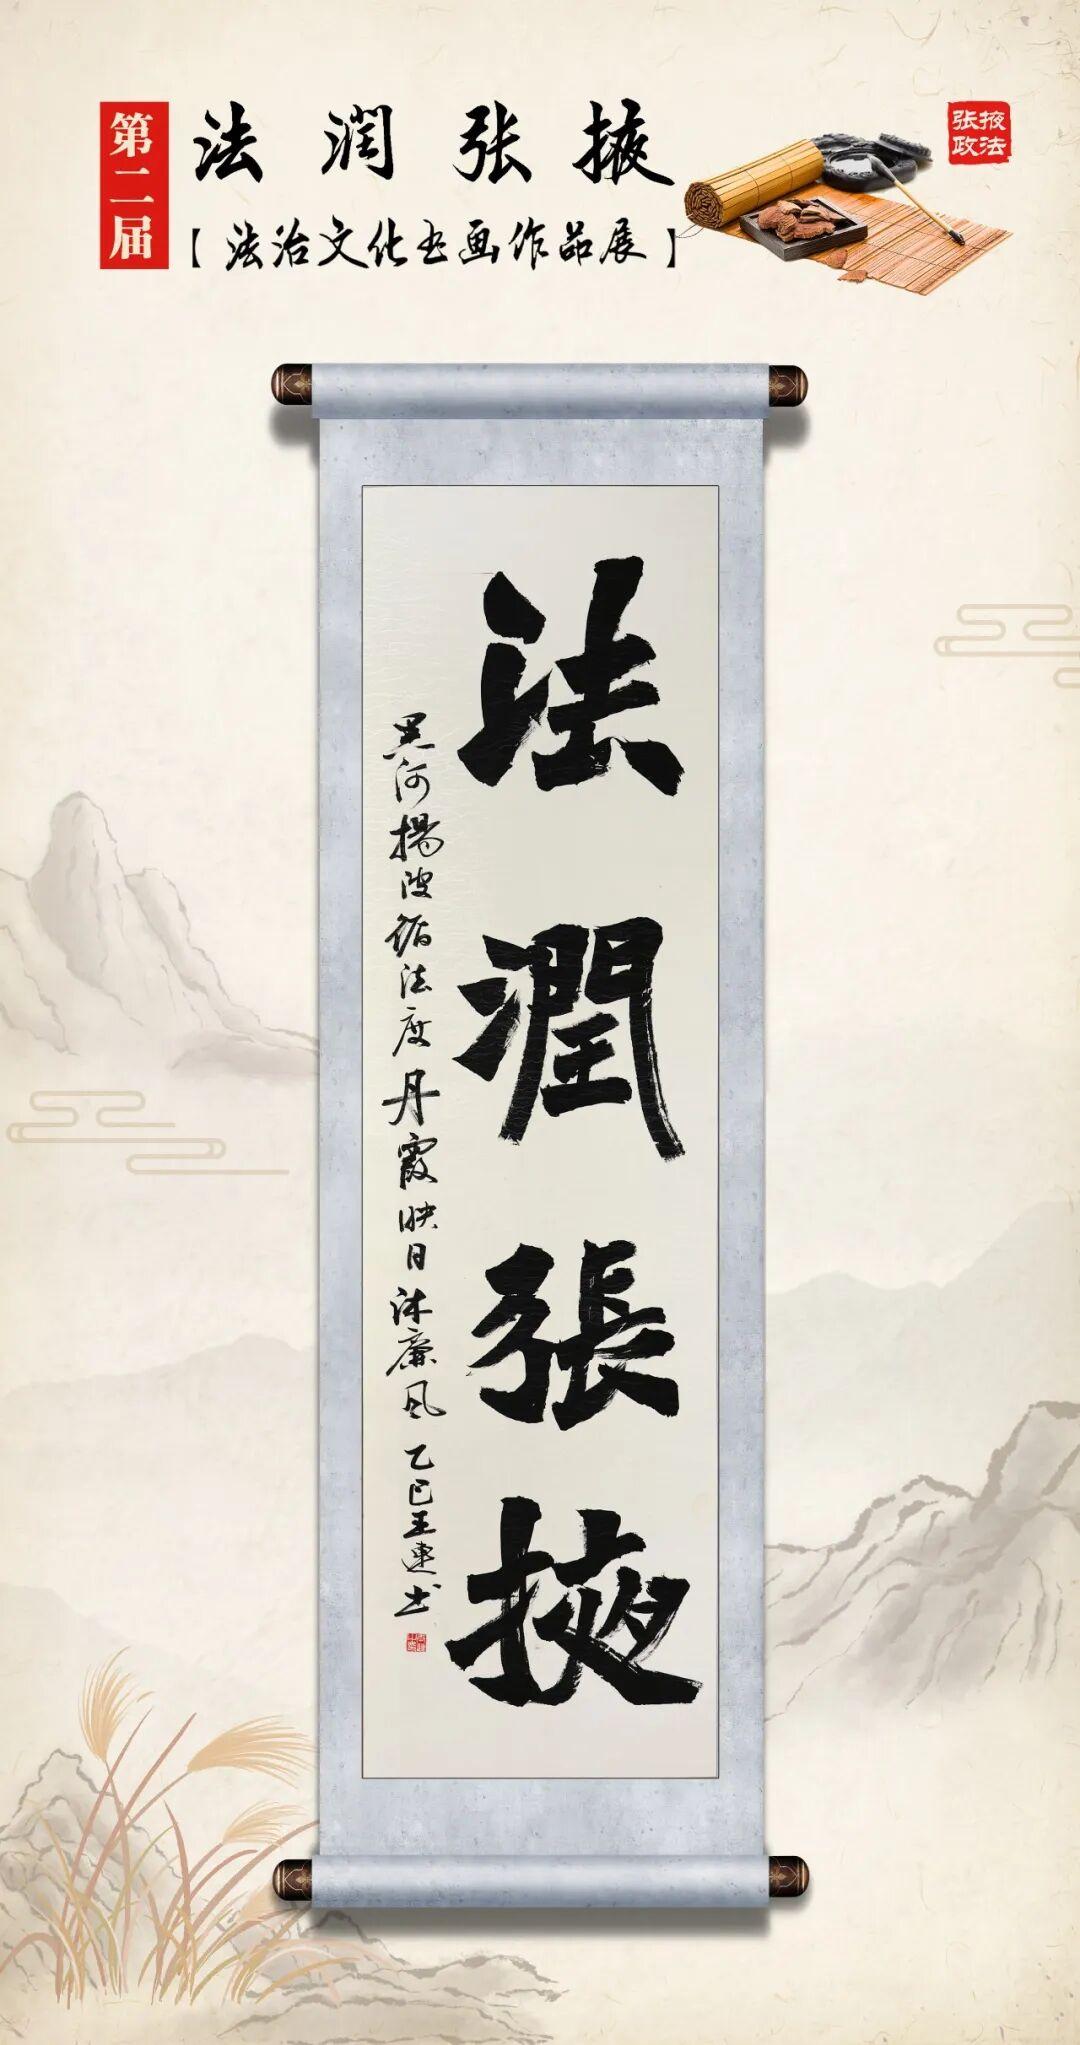 第二届
法润张掖
【法治文化书画作品展】
张掖政法
法潤張掖
黑河揚波循法度丹霞映日沐廉风乙巳王連书